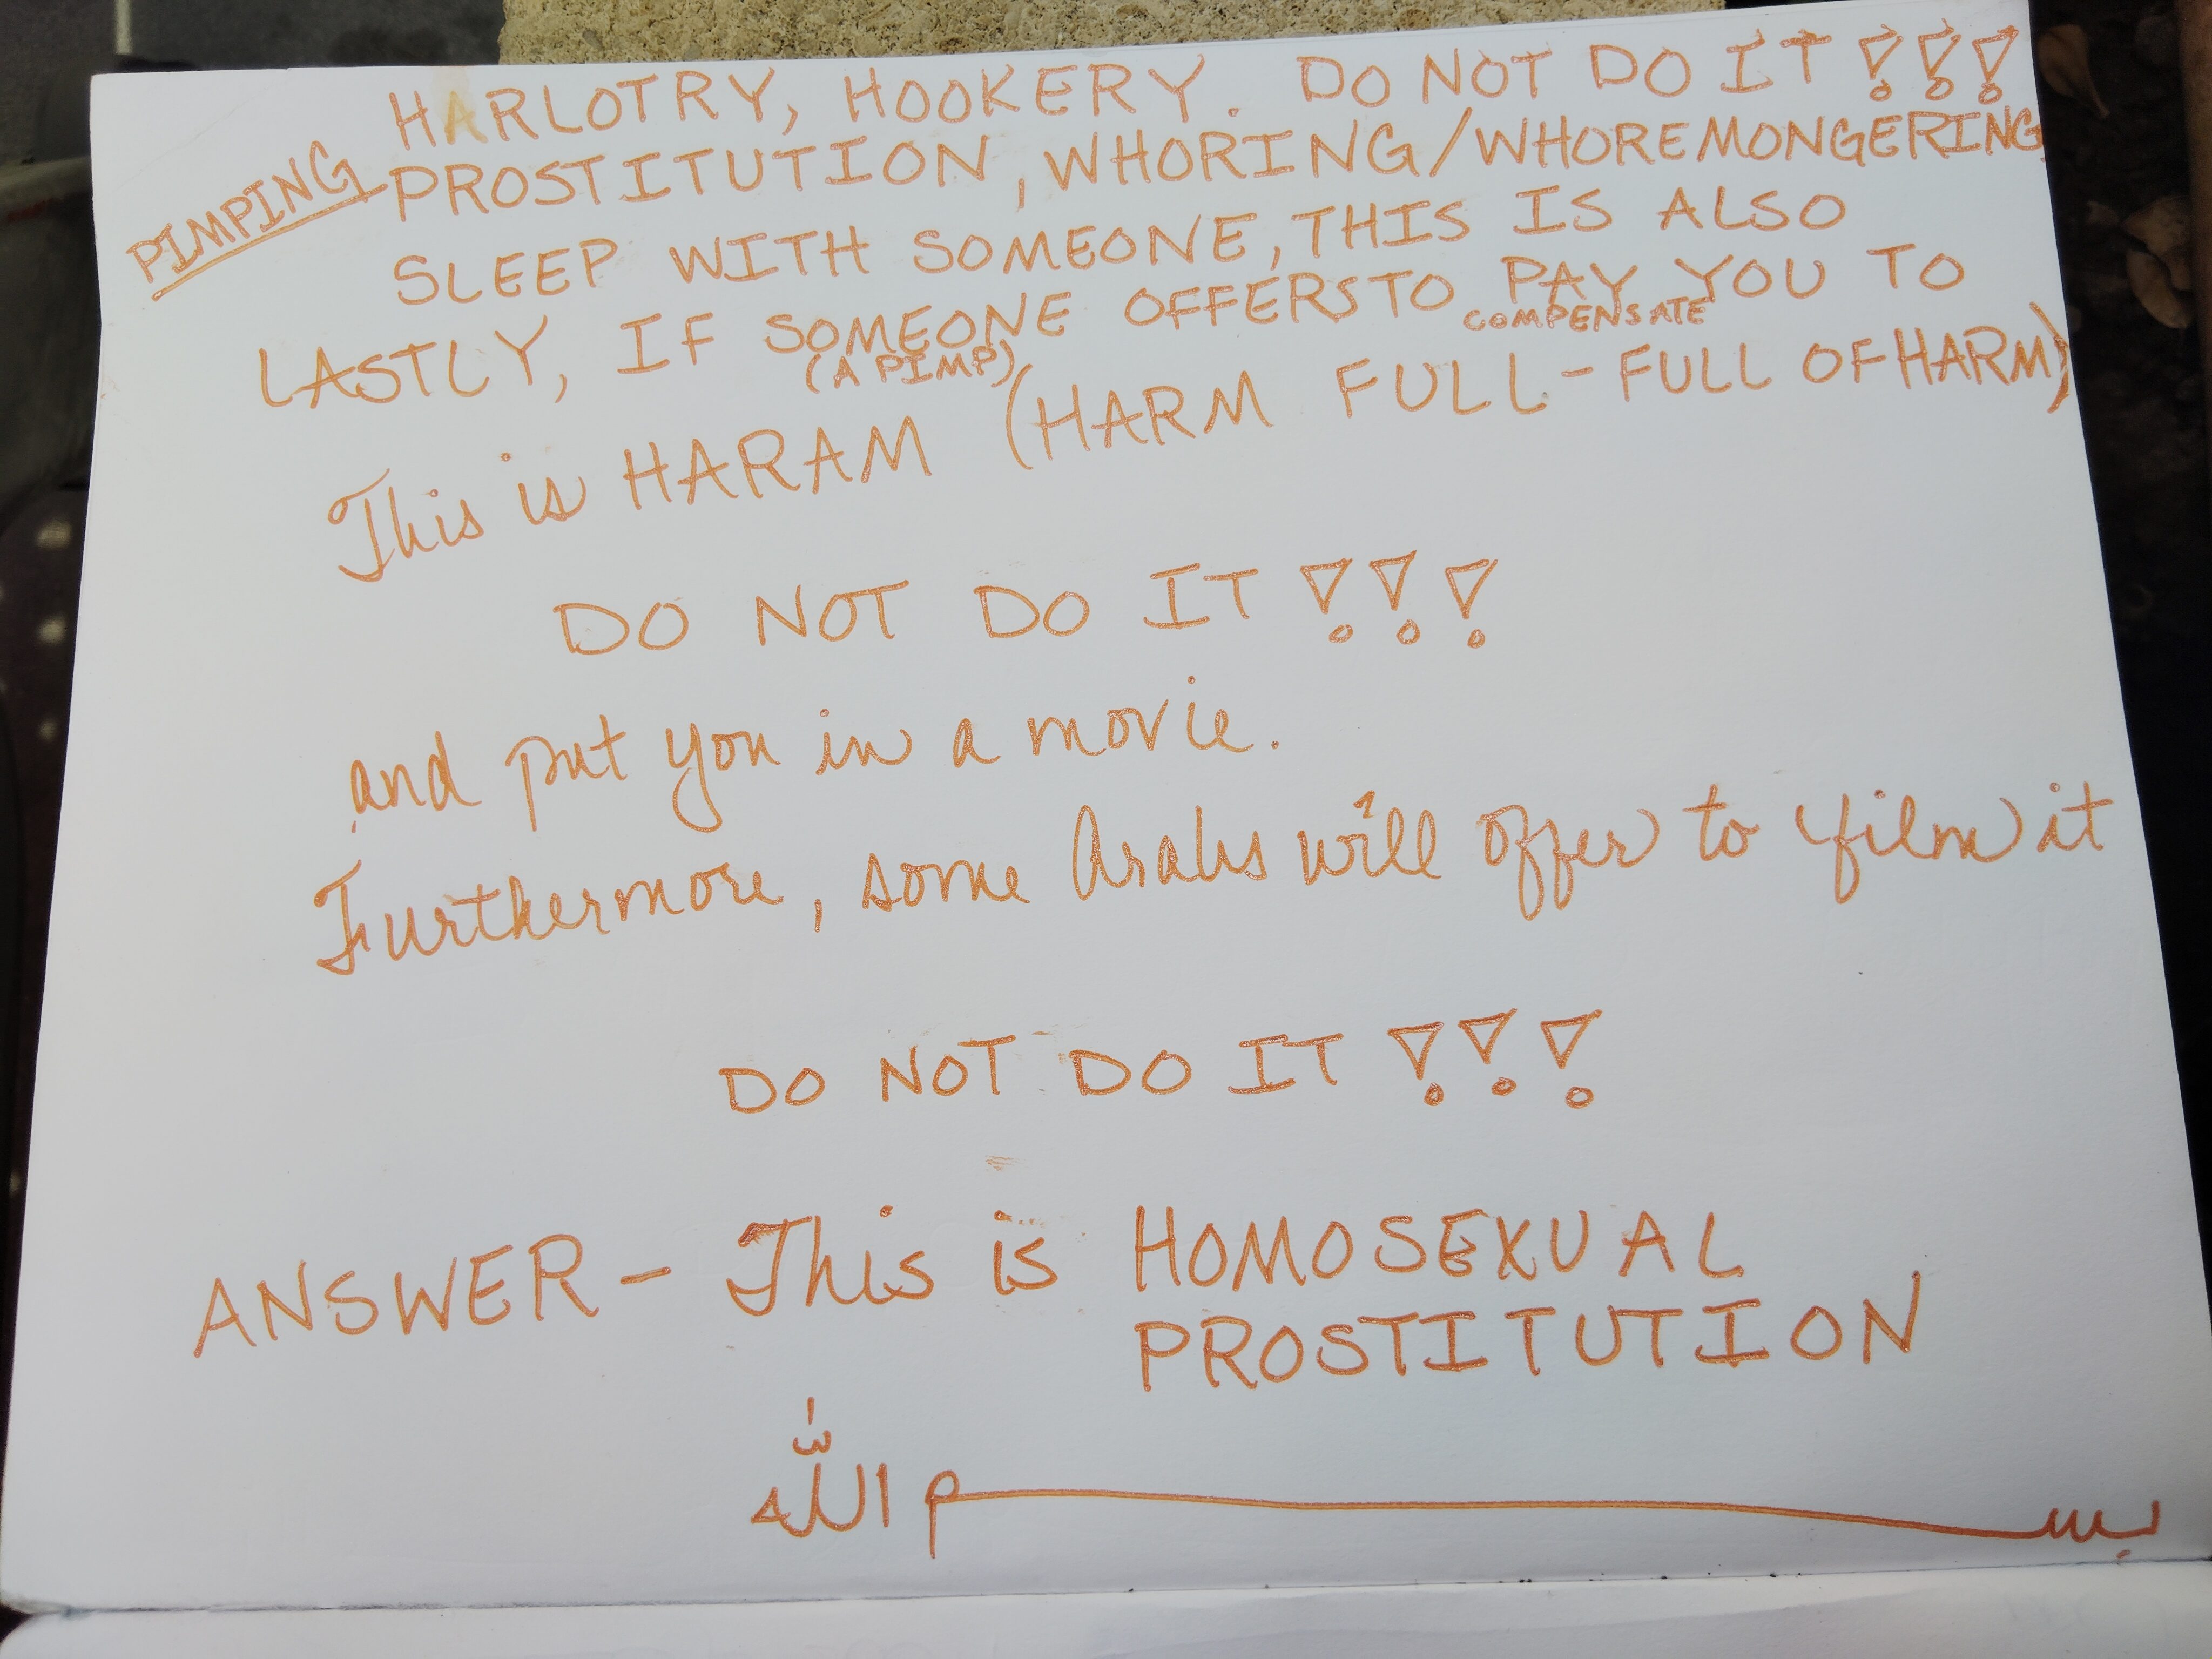 HARLOTRY, HOOKERY. DO NOT DO IT!!!
PIMPING PROSTITUTION, WHORING/WHOREMONGERING
SLEEP WITH SOMEONE, THIS IS ALSO
LASTLY, IF SOMEONE OFFERS TO PAY YOU TO
(A PIMP) COMPENSATE
This is HARAM (HARM FULL - FULL OF HARM)
DO NOT DO IT!!!
and put you in a movie.
Furthermore, some Arabs will offer to film it
DO NOT DO IT!!!
ANSWER - This is HOMOSEXUAL
PROSTITUTION
بسم اللّٰه